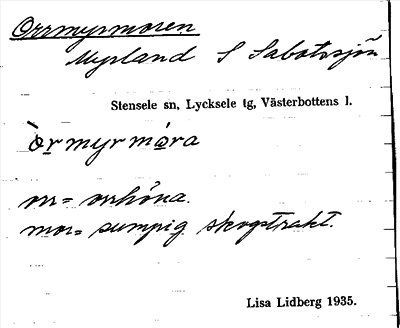 Orrmyrmoren
Myrland S Sabotssjön
Stensele sn, Lycksele tg, Västerbottens l.
òrmyrmóra
orr= orrhöna.
mor= sumpig skogstrakt.
Lisa Lidberg 1935.